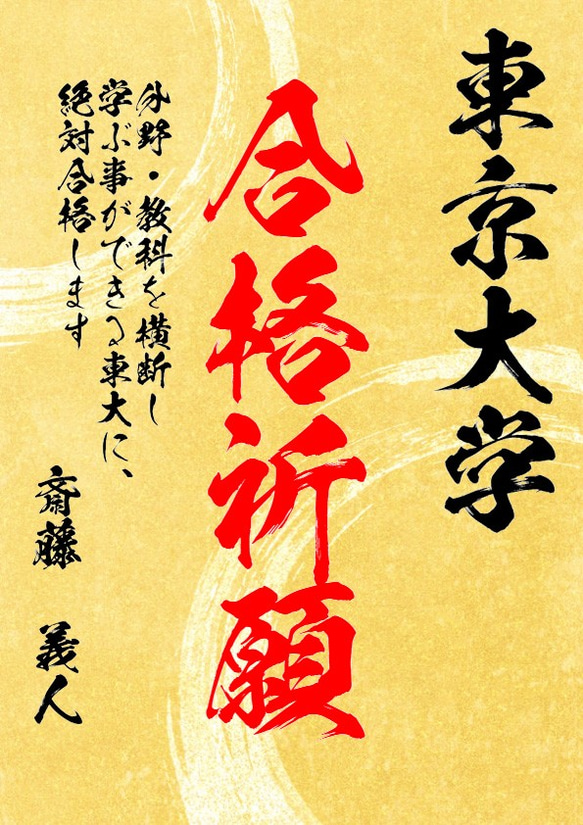 東京大学
合格祈願
分野・教科を横断し
学ぶ事ができる東大に、
絶対合格します
斎藤 義人